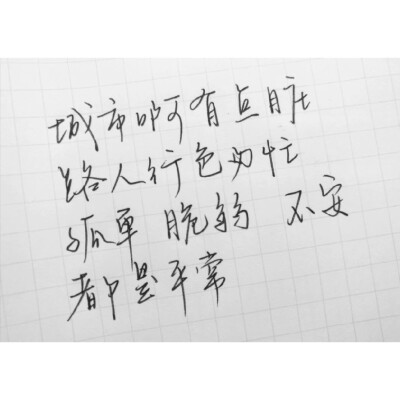 城市啊有点脏
路人行色匆忙
孤单 脆弱 不安
都是平常